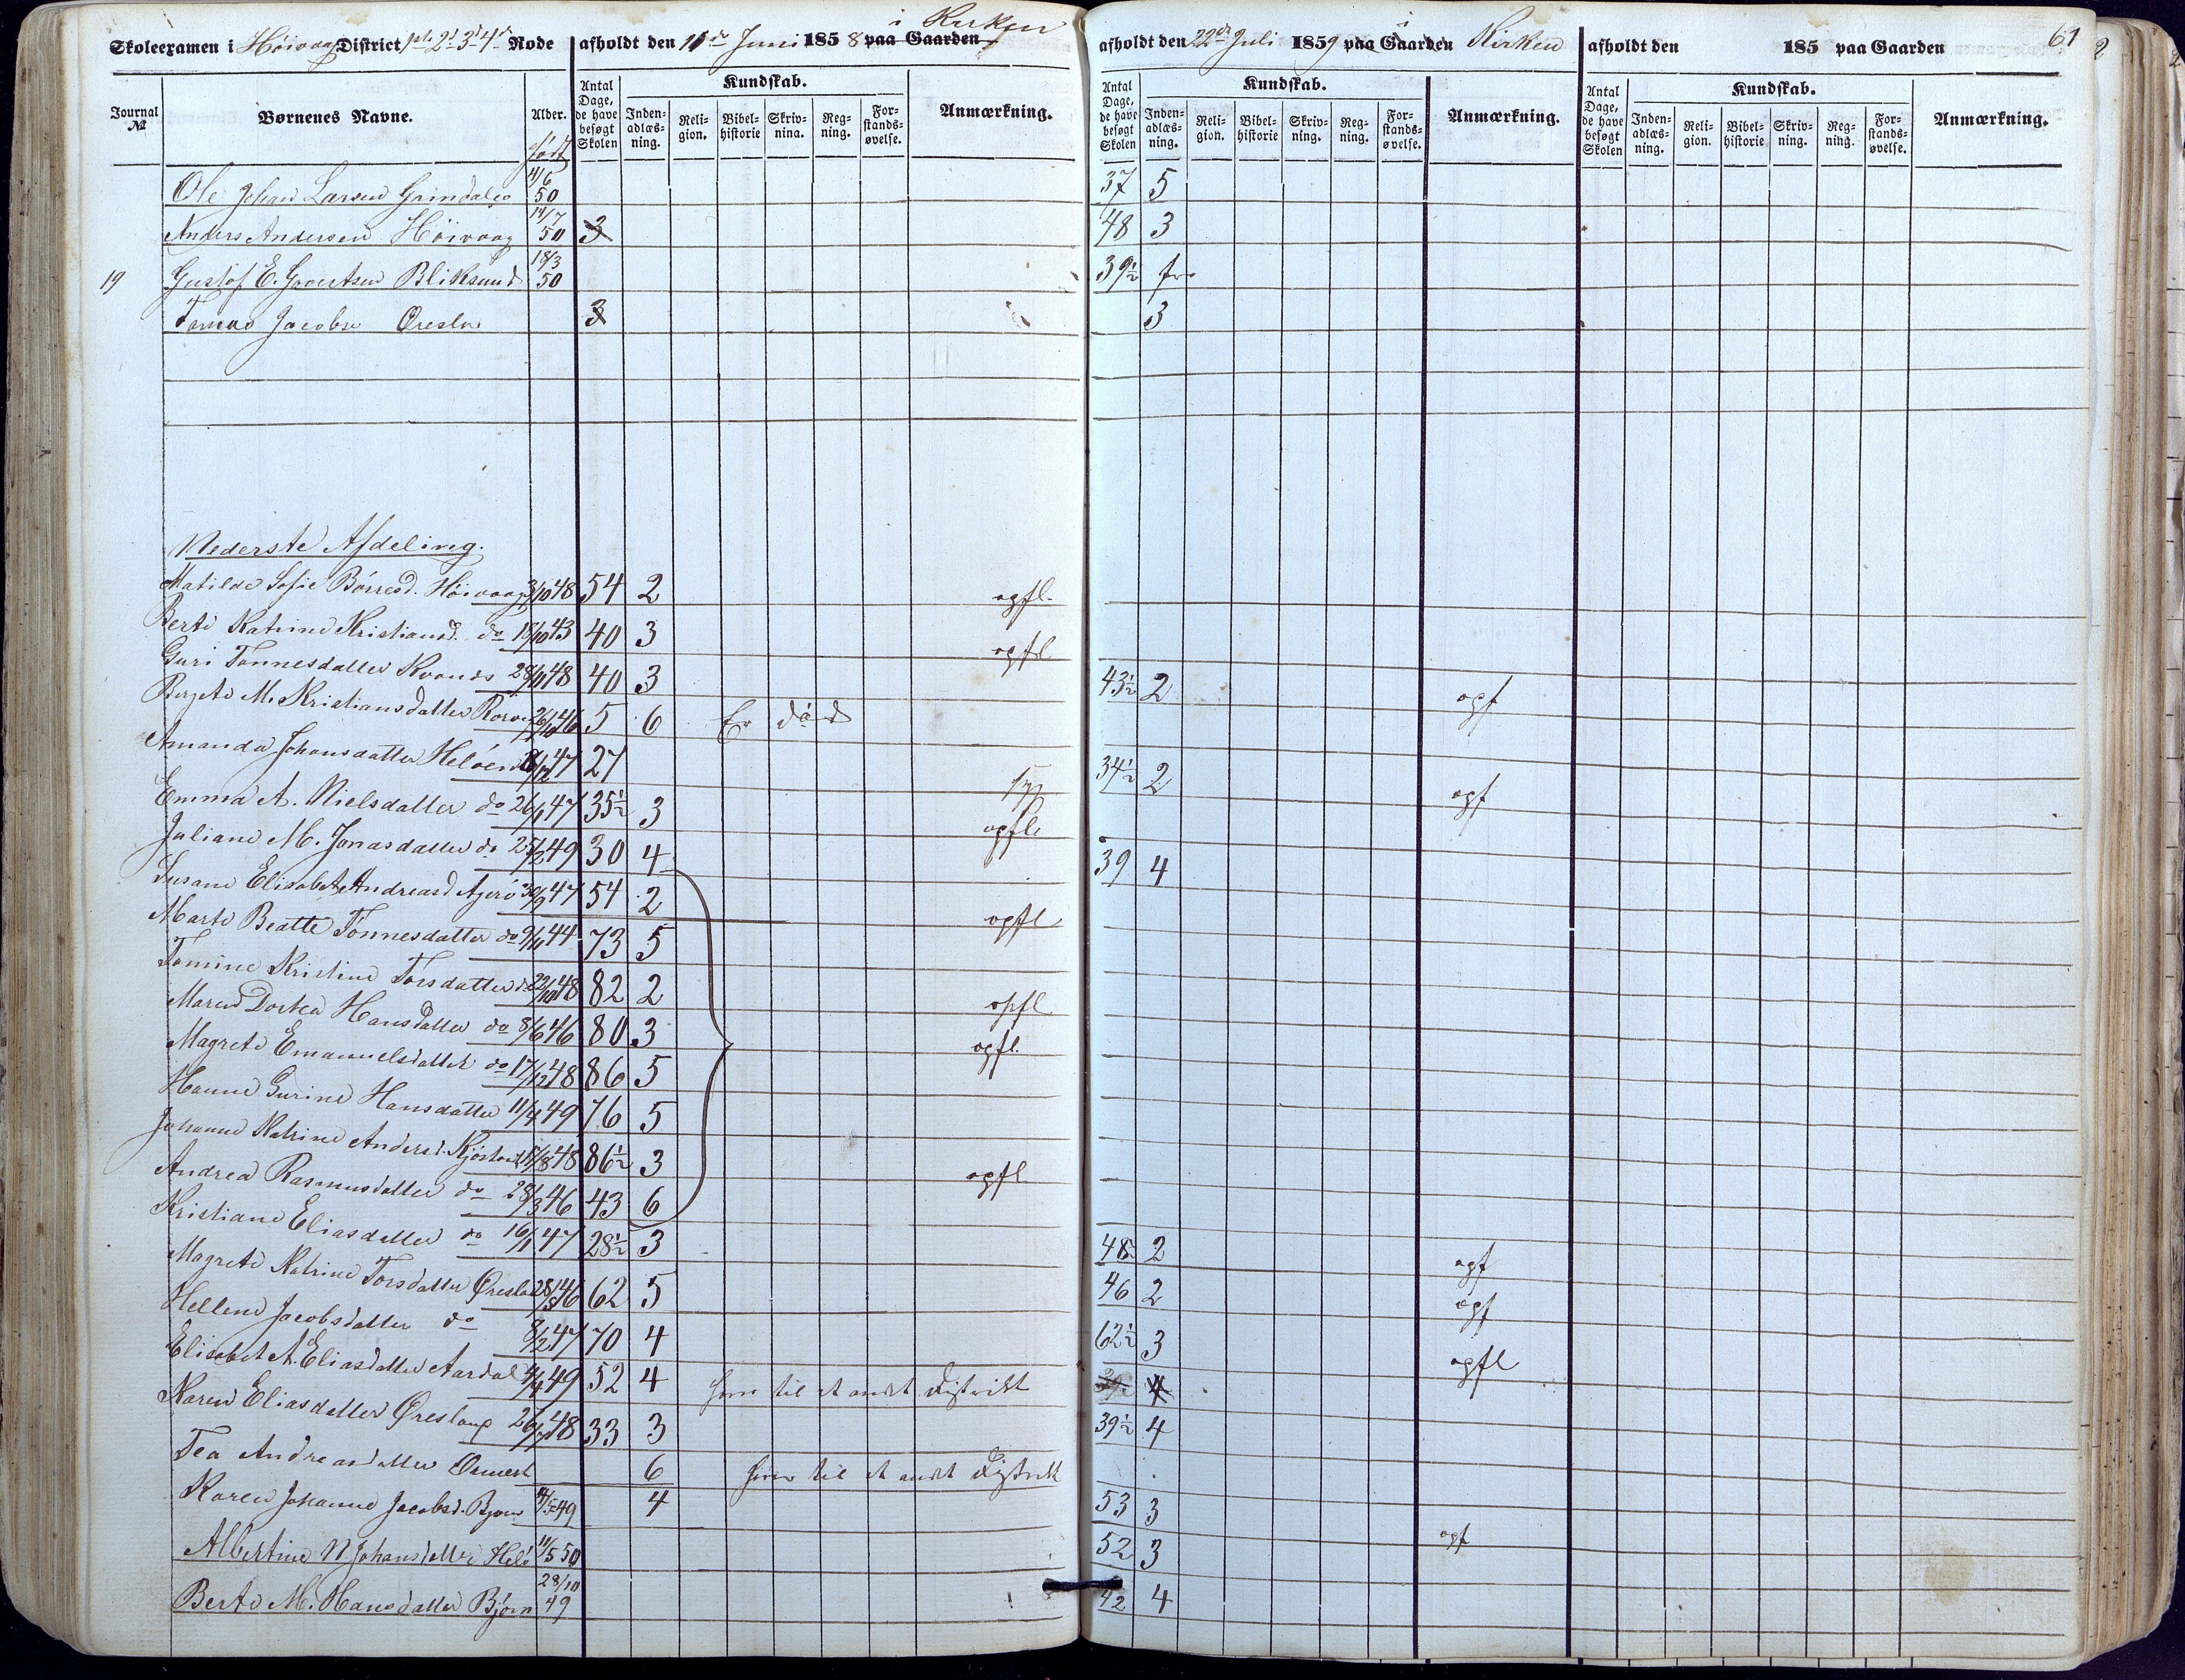 Skoleexamen i Høivaag District 1ste 2d 3d 4de Rode afholdt den 11te Juni 1858 paa Gaarden i Kirken afholdt den 22de Juli 1859 paa Gaarden i Kirken afholdt den 185 paa Gaarden 61
Journal № Børnenes Navne. Alder. født Antal Dage, de have besøgt Skolen Kundskab. Inden-adlæs-ning. Reli-gion. Bibel-historie Skriv-nina. Reg-ning. For-stands-øvelse. Anmærkning. Antal Dage, de have besøgt Skolen Kundskab. Inden-adlæs-ning. Reli-gion. Bibel-historie Skriv-ning. Reg-ning. For-stands-øvelse. Anmærkning. Antal Dage, de have besøgt Skolen Kundskab. Inden-adlæs-ning. Reli-gion. Bibel-historie Skriv-ning. Reg-ning. For-stands-øvelse. Anmærkning.
Ole Johan Larsen Grimdalen 11/6 50 37 5
Anders Andersen Höivaag 14/7 50 3 48 3
19 Gustof E. Govertsen Bliksund 18/3 50 39½
Tomas Jacobsen 3 3
Nederste Afdeling.
Matilde Sofie Börresd. Höivaag 3/10 48 54 2 opfl.
Berte Katrine Kristiansd. do 18/10 43 40 3 opfl
Guri Tonnesdatter 28/11 48 40 3 43½ 2 opf
Bergete M. Kristiansdatter 26/10 46 5 6 Er död
Amanda Johansdatter Helöen 47 27 34½ 2 opf
Emma A. Nielsdatter do 26/1 47 35½ 3 opfl
Juliane M. Jonasdatter do 25/2 49 30 4 39 4
Susane Elisabet Andreasd Ajerö 30/9 47 54 2 opfl
Marte Beatte Tönnesdatter do 9/11 44 73 5
Tomine Kristine Torsdatter do 22/10 48 82 2 opfl
Maren Dortea Hansdatter do 8/6 46 80 3 opfl.
Magrete Emanuelsdatter do 17/12 48 86 5
Hanne Gurine Hansdatter 11/4 49 76 5
Johanne Katrine Andersd. 48 86½ 3 opfl
Andrea Rasmusdatter do 28/3 46 43 6
Kristiane Eliasdatter do 16/1 47 28½ 3 48 2 opf
Magrete Katrine Torsdatter Øresland 28/5 46 62 5 46 2 opf
Hellene Jacobsdatter do 8/2 47 70 4 62½ 3 opfl
Elisabet A. Eliasdatter Aardal 4/4 49 52 4 til et andet District 39 4
Karen Eliasdatter Øreslang 48 33 3 39½ 4
Tea Andreasdatter 6 til et andet District
Karen Johanne Jacobsd. 4/5 49 4 53 3
Albertine N Johansdatter Helö 11/5 50 52 3 opf
Berte M. Hansdatter Björn 28/10 49 42 4